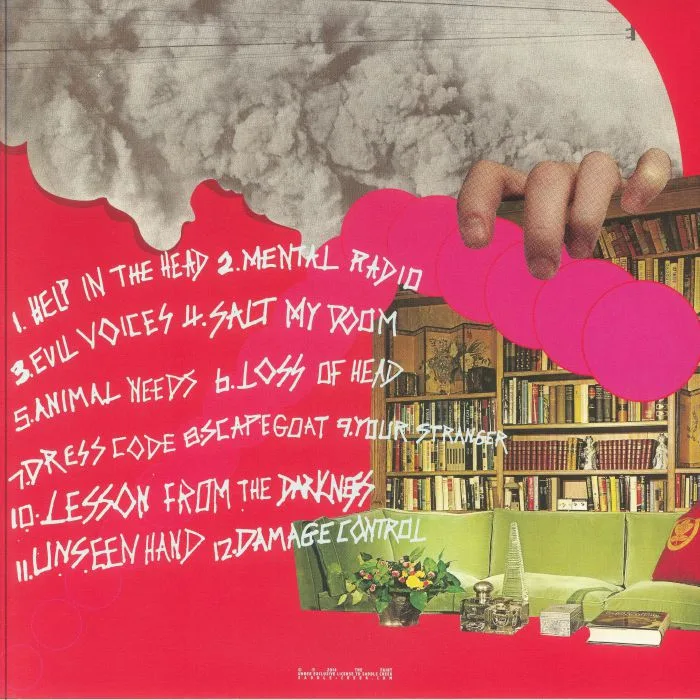 1. HELP IN THE HEAD 2. MENTAL RADIO
3. EVIL VOICES 4. SALT MY DOOM
5. ANIMAL NEEDS 6. LOSS OF HEAD
7. DRESS CODE 8. SCAPEGOAT 9. YOUR STRANGER
10. LESSON FROM THE DARKNESS
11. UNSEEN HAND 12. DAMAGE CONTROL
© ℗ 2014 THE FAINT
UNDER EXCLUSIVE LICENSE TO SADDLE CREEK
SADDLE-CREEK.COM